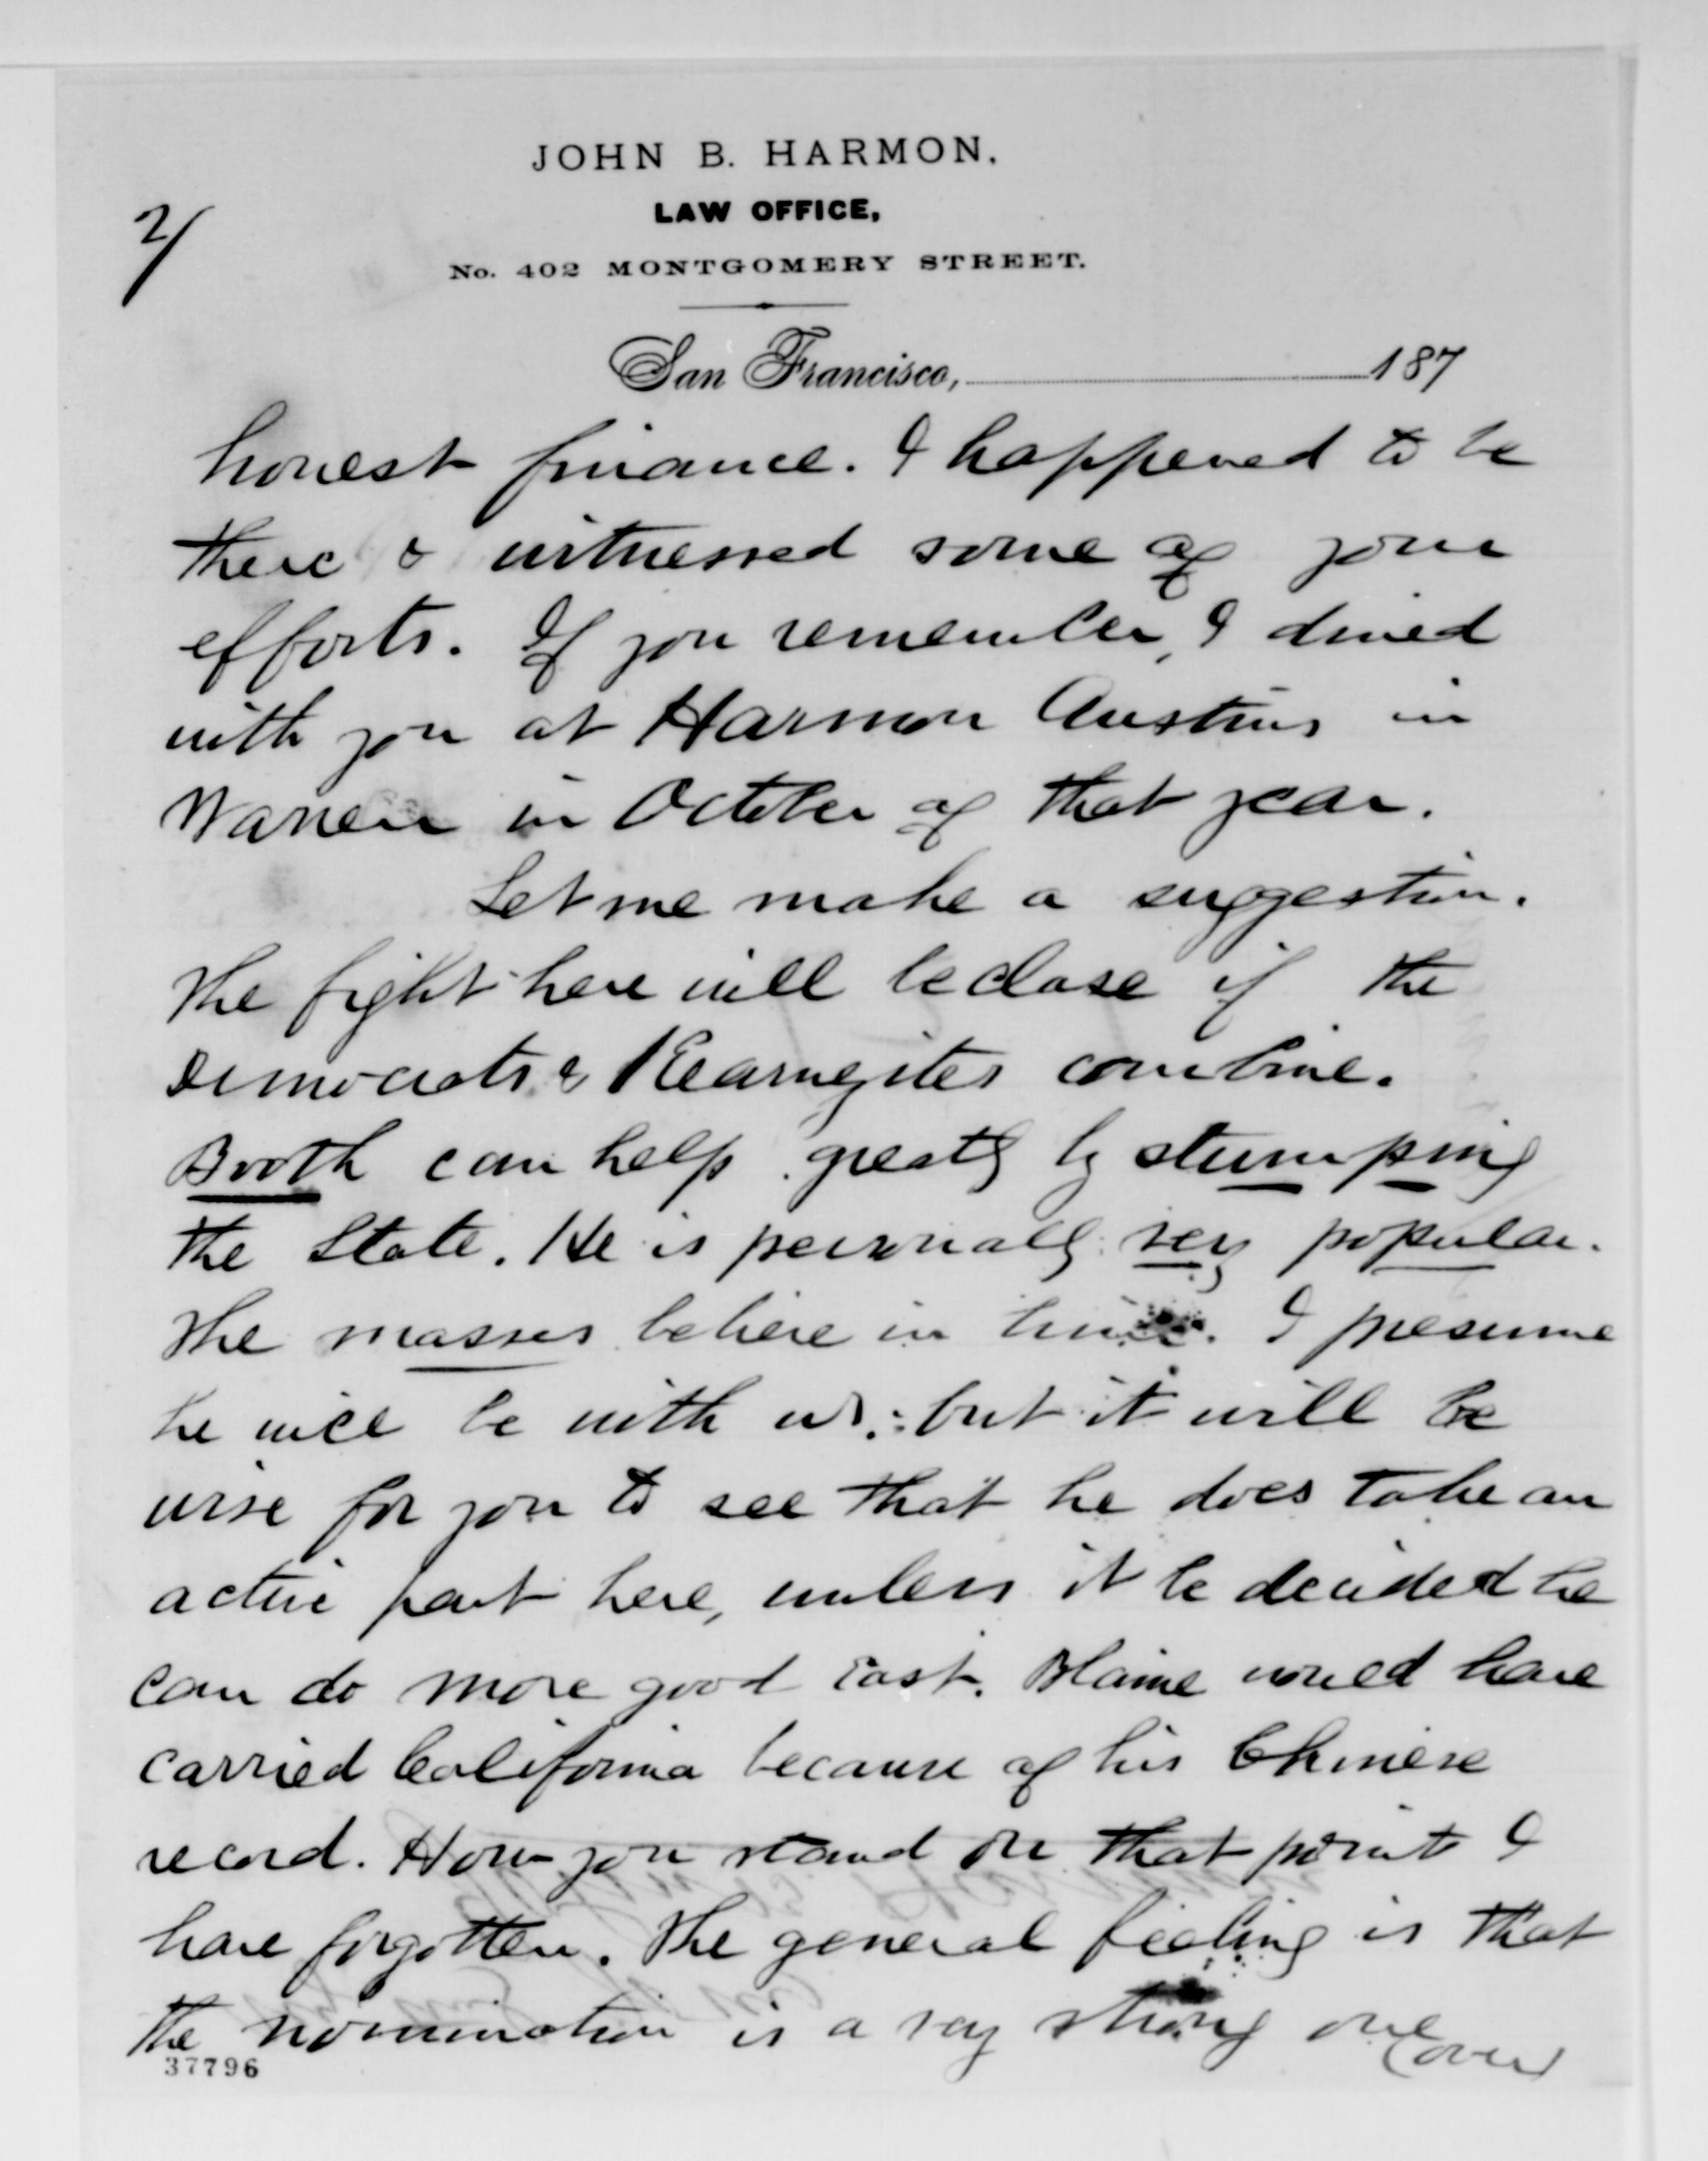 JOHN B. HARMON.
LAW OFFICE,
2/
No. 402 MONTGOMERY STREET.
San Francisco, 187
honest finance. I happened to be
there & witnessed some of your
efforts. If you remember, I dined
with you at Harmon Austins in
Warren in October of that year.
Let me make a suggestion.
The fight here will be close if the
Democrats & Kearneyites combine.
Booth can help greatly by stumping
the State. He is personally very popular.
The masses believe in him. I presume
he will be with us: but it will be
wise for you to see that he does take an
active part here, unless it be decided he
can do more good East. Blaine would have
carried California because of his Chinese
record. How you stand on that point I
have forgotten. The general feeling is that
the nomination is a very strong one
(over)
37796